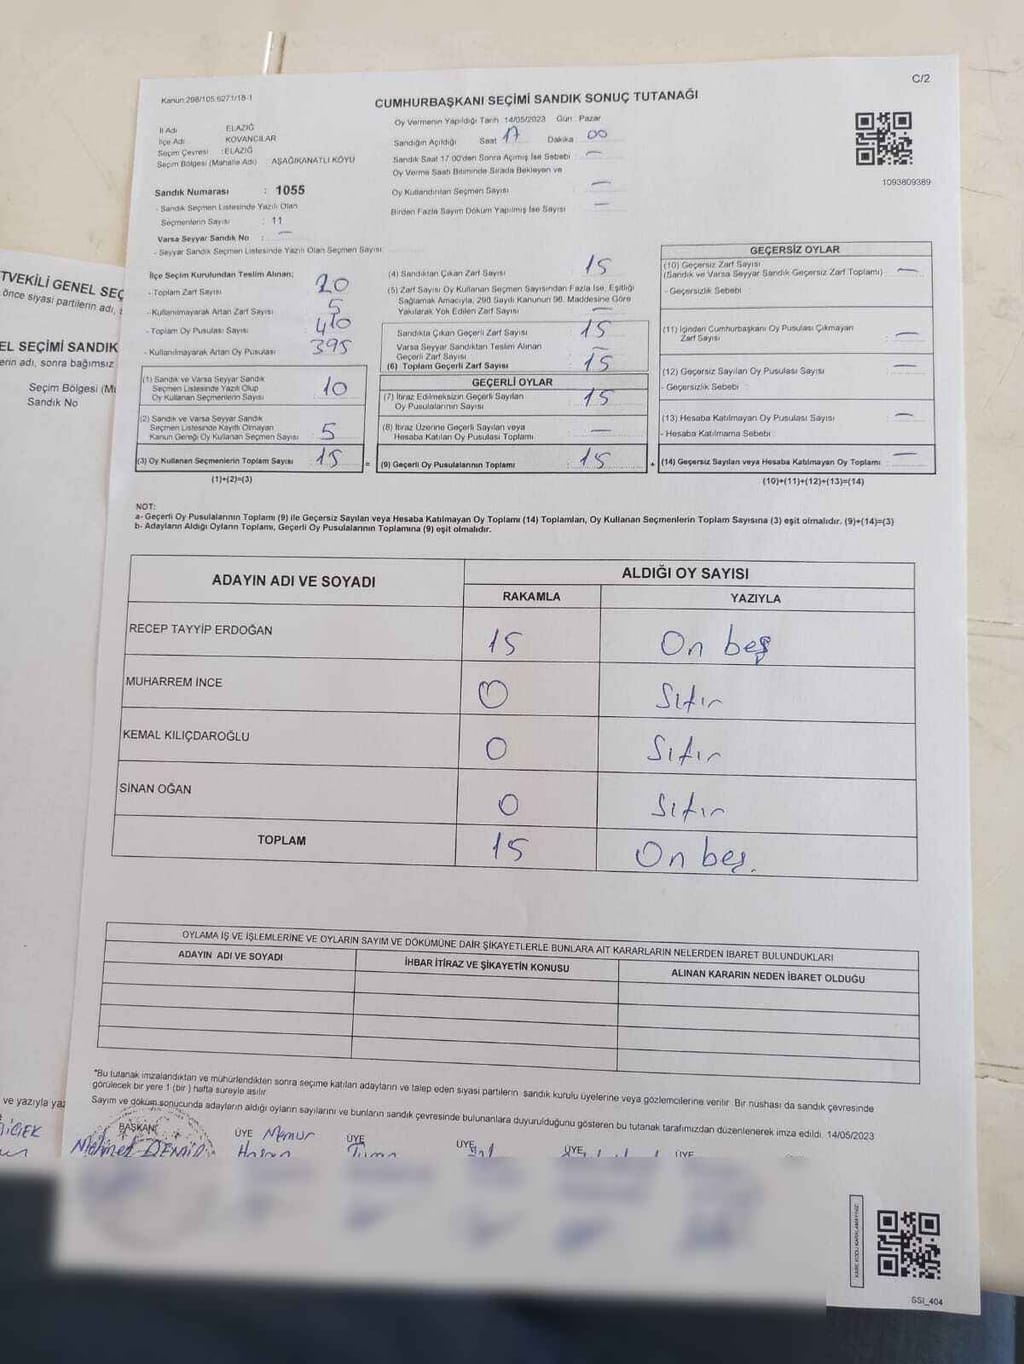 C/2
Kanun:298/105.6271/18-1
CUMHURBAŞKANI SEÇİMİ SANDIK SONUÇ TUTANAĞI
İl Adı ELAZIĞ
İlçe Adı KOVANCILAR
Seçim Çevresi :ELAZIĞ
Seçim Bölgesi (Mahalle Adı) : AŞAĞIKANATLI KÖYÜ
Oy Vermenin Yapıldığı Tarih 14/05/2023 Gün : Pazar
Sandığın Açıldığı Saat 17 Dakika 00
Sandık Saat 17:00'den Sonra Açılmış İse Sebebi —
Oy Verme Saati Bitiminde Sırada Bekleyen ve
Oy Kullandırılan Seçmen Sayısı —
Birden Fazla Sayım Döküm Yapılmış İse Sayısı —
1093809389
Sandık Numarası : 1055
- Sandık Seçmen Listesinde Yazılı Olan
Seçmenlerin Sayısı : 11
Varsa Seyyar Sandık No : —
- Seyyar Sandık Seçmen Listesinde Yazılı Olan Seçmen Sayısı:
İlçe Seçim Kurulundan Teslim Alınan;
- Toplam Zarf Sayısı 20
- Kullanılmayarak Artan Zarf Sayısı 5
- Toplam Oy Pusulası Sayısı 410
- Kullanılmayarak Artan Oy Pusulası 395
(1) Sandık ve Varsa Seyyar Sandık
Seçmen Listesinde Yazılı Olup
Oy Kullanan Seçmenlerin Sayısı 10
(2) Sandık ve Varsa Seyyar Sandık
Seçmen Listesinde Kayıtlı Olmayan
Kanun Gereği Oy Kullanan Seçmen Sayısı 5
(3) Oy Kullanan Seçmenlerin Toplam Sayısı 15
(1)+(2)=(3)
(4) Sandıktan Çıkan Zarf Sayısı 15
(5) Zarf Sayısı Oy Kullanan Seçmen Sayısından Fazla İse, Eşitliği
Sağlamak Amacıyla, 298 Sayılı Kanunun 98. Maddesine Göre
Yakılarak Yok Edilen Zarf Sayısı —
Sandıkta Çıkan Geçerli Zarf Sayısı 15
Varsa Seyyar Sandıktan Teslim Alınan
Geçerli Zarf Sayısı —
(6) Toplam Geçerli Zarf Sayısı 15
GEÇERLİ OYLAR
(7) İtiraz Edilmeksizin Geçerli Sayılan
Oy Pusulalarının Sayısı 15
(8) İtiraz Üzerine Geçerli Sayılan veya
Hesaba Katılan Oy Pusulası Toplamı —
= (9) Geçerli Oy Pusulalarının Toplamı 15 +
GEÇERSİZ OYLAR
(10) Geçersiz Zarf Sayısı
(Sandık ve Varsa Seyyar Sandık Geçersiz Zarf Toplamı) —
- Geçersizlik Sebebi :
(11) İçinden Cumhurbaşkanı Oy Pusulası Çıkmayan
Zarf Sayısı —
(12) Geçersiz Sayılan Oy Pusulası Sayısı —
- Geçersizlik Sebebi :
(13) Hesaba Katılmayan Oy Pusulası Sayısı —
- Hesaba Katılmama Sebebi :
(14) Geçersiz Sayılan veya Hesaba Katılmayan Oy Toplamı —
(10)+(11)+(12)+(13)=(14)
NOT:
a- Geçerli Oy Pusulalarının Toplamı (9) ile Geçersiz Sayılan veya Hesaba Katılmayan Oy Toplamı (14) Toplamları, Oy Kullanan Seçmenlerin Toplam Sayısına (3) eşit olmalıdır. (9)+(14)=(3)
b- Adayların Aldığı Oyların Toplamı, Geçerli Oy Pusulalarının Toplamına (9) eşit olmalıdır.
ADAYIN ADI VE SOYADI ALDIĞI OY SAYISI
RAKAMLA YAZIYLA
RECEP TAYYİP ERDOĞAN 15 On beş
MUHARREM İNCE 0 Sıfır
KEMAL KILIÇDAROĞLU 0 Sıfır
SİNAN OĞAN 0 Sıfır
TOPLAM 15 On beş.
OYLAMA İŞ VE İŞLEMLERİNE VE OYLARIN SAYIM VE DÖKÜMÜNE DAİR ŞİKAYETLERLE BUNLARA AİT KARARLARIN NELERDEN İBARET BULUNDUKLARI
ADAYIN ADI VE SOYADI İHBAR İTİRAZ VE ŞİKAYETİN KONUSU ALINAN KARARIN NEDEN İBARET OLDUĞU
*Bu tutanak imzalandıktan ve mühürlendikten sonra seçime katılan adayların ve talep eden siyasi partilerin sandık kurulu üyelerine veya gözlemcilerine verilir. Bir nüshası da sandık çevresinde
görülecek bir yere 1 (bir ) hafta süreyle asılır
Sayım ve döküm sonucunda adayların aldığı oyların sayılarını ve bunların sandık çevresinde bulunanlara duyurulduğunu gösteren bu tutanak tarafımızdan düzenlenerek imza edildi. 14/05/2023
BAŞKAN ÜYE Memur ÜYE ÜYE ÜYE ÜYE
Mehmet DEMİR Hasan
KARE KODU KARALAMAYINIZ
SSI_404
TVEKİLİ GENEL SEÇ
önce siyasi partilerin adı,
EL SEÇİMİ SANDIK
erin adı, sonra bağımsız
Seçim Bölgesi (M
Sandık No
ve yazıyla yaz